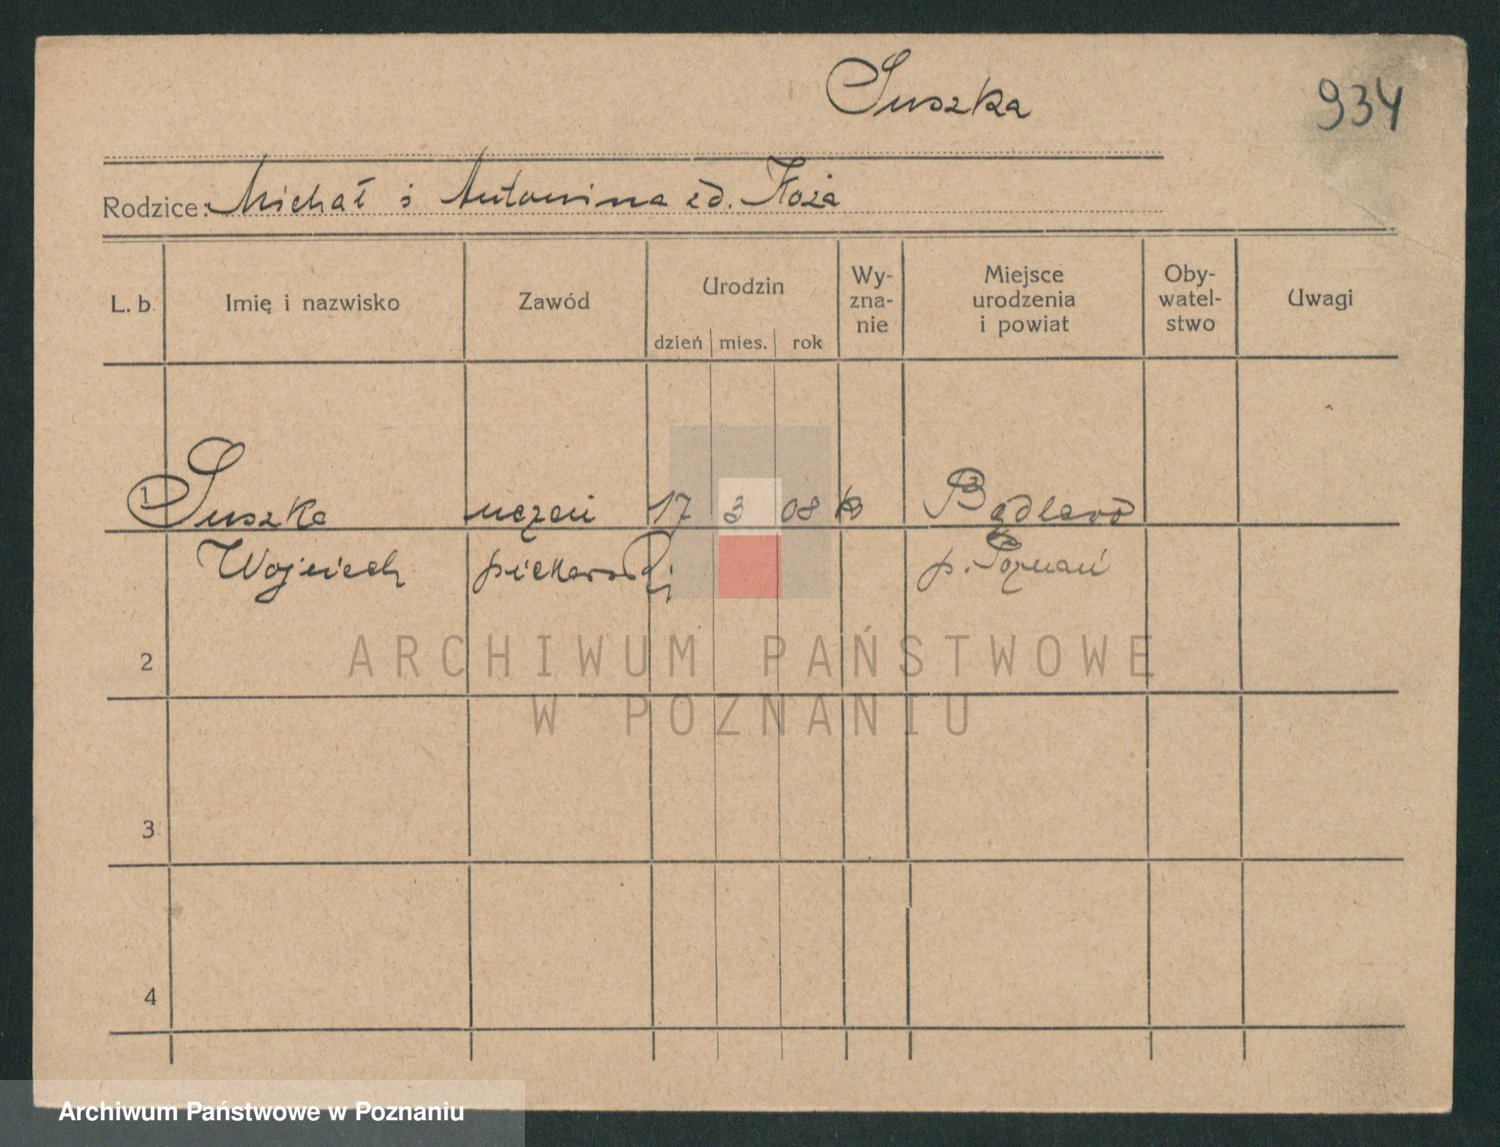 Suszka
934
Rodzice: Michał i Antonina zd. Łoża
L. b.
Imię i nazwisko
Zawód
Urodzin
dzień mies. rok
Wy-
zna-
nie
Miejsce
urodzenia
i powiat
Oby-
watel-
stwo
Uwagi
1 Suszka uczeń 17 3 08 k
Wojciech piekarski p. Poznań
2
3
4
ARCHIWUM PAŃSTWOWE
W POZNANIU
Archiwum Państwowe w Poznaniu